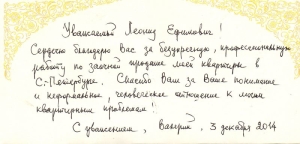 Уважаемый Леонид Ефимович!
Сердечно благодарю Вас за безупречную, профессиональную
работу по заочной продаже моей квартиры в
С.-Петербурге. Спасибо Вам за Ваше понимание
и неформальное, человеческое отношение к моим
квартирным проблемам!
С уважением, Валерий, 3 декабря 2014